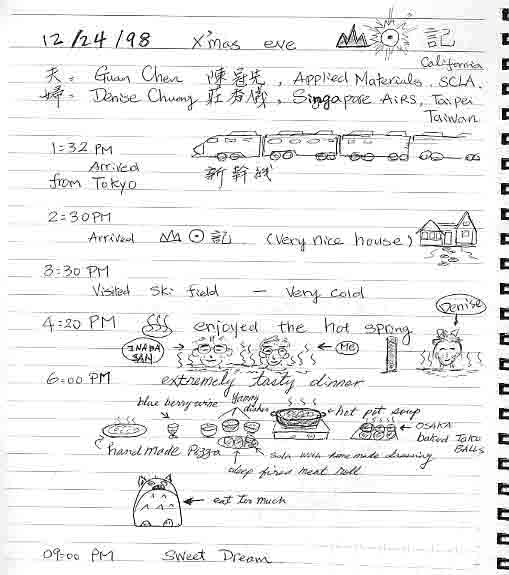 12/24/98 X'mas eve 記
California
夫 = Guan Chen 陳冠先, Applied Materials, SCLA.
婦 = Denise Chuang 莊香儀, Singapore AIRS, Taipei
Taiwan
1:32 PM
Arrived
from Tokyo
新幹线
2:30 PM
Arrived 記 (Very nice house)
3:30 PM
Visited Ski field – Very cold
Denise
4:20 PM enjoyed the hot spring
INABA
SAN
Me
6:00 PM extremely tasty dinner
blue berry wine
Yummy
dishes
hot pot soup
OSAKA
baked TAKO
BALLS
hand made Pizza
with home made dressing
deep fired meat roll
eat too much
09:00 PM Sweet Dream